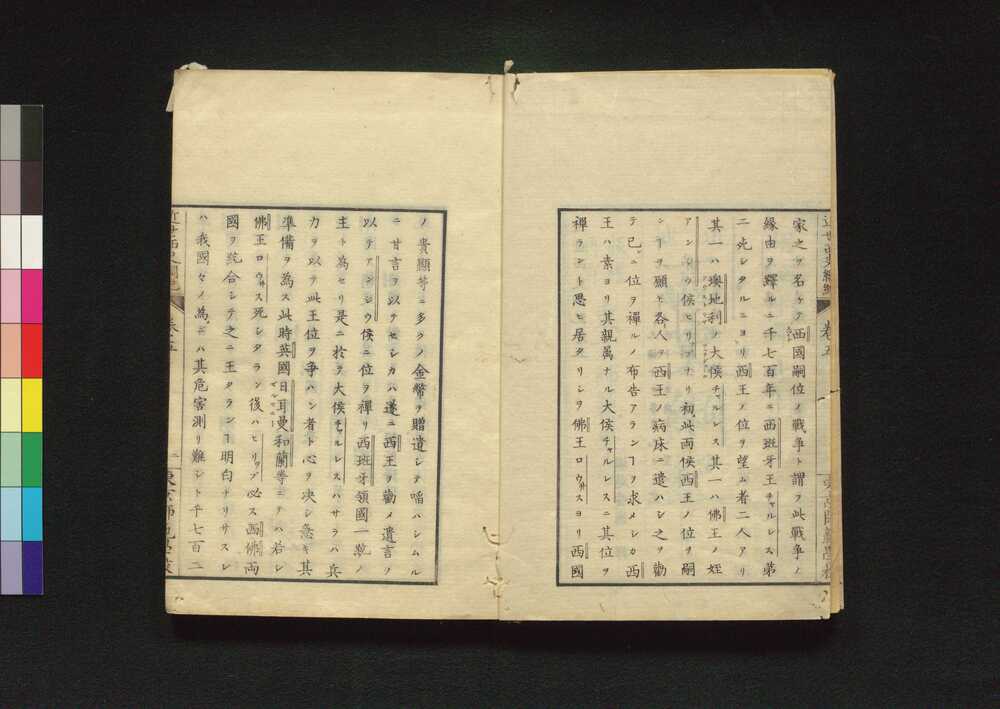 家之ヲ名ケテ西國嗣位ノ戰爭ト謂フ此戰爭ノ
緣由ヲ繹ルニ千七百年ニ西班牙王チャルレス第
二死シタルニヨリ西王ノ位ヲ望ム者二人アリ
其一ハ墺地利ノ大侯チャルレス其一ハ佛王ノ姪
アンジウ侯ヒリプナリ初此両侯西王ノ位ヲ嗣
ンヿヲ願ヒ各人ヲ西王ノ病床ニ遣ハシ之ヲ勸
テ已ニ位ヲ禪ルノ布告アランヿヲ求メシカ西
王ハ素ヨリ其親属ナル大侯チャルレスニ其位ヲ
禪ラント思ヒ居タリシヲ佛王ロウ井スヨリ西國
ノ貴顯等ニ多クノ金幣ヲ贈遺シテ啗ハシムル
ニ甘言ヲ以テセシカハ遂ニ西王ヲ勸メ遺言ノ
以テアンジウ侯ニ位ヲ禪リ西班牙領國一統ノ
主ト為セリ是ニ於テ大侯チャルレスハサラハ兵
力ヲ以テ此王位ヲ爭ハン者ト心ヲ决シ急ギ其
準備ヲ為ス此時英國日耳曼和蘭等ニテハ若シ
佛王ロウ井ス死シタラン後ハヒリップ必ス西佛両
國ヲ統合シテ之ニ王タランヿ明白ナリサスレ
ハ我國々ノ為ニハ其危害測リ難シト千七百二
卷五
二